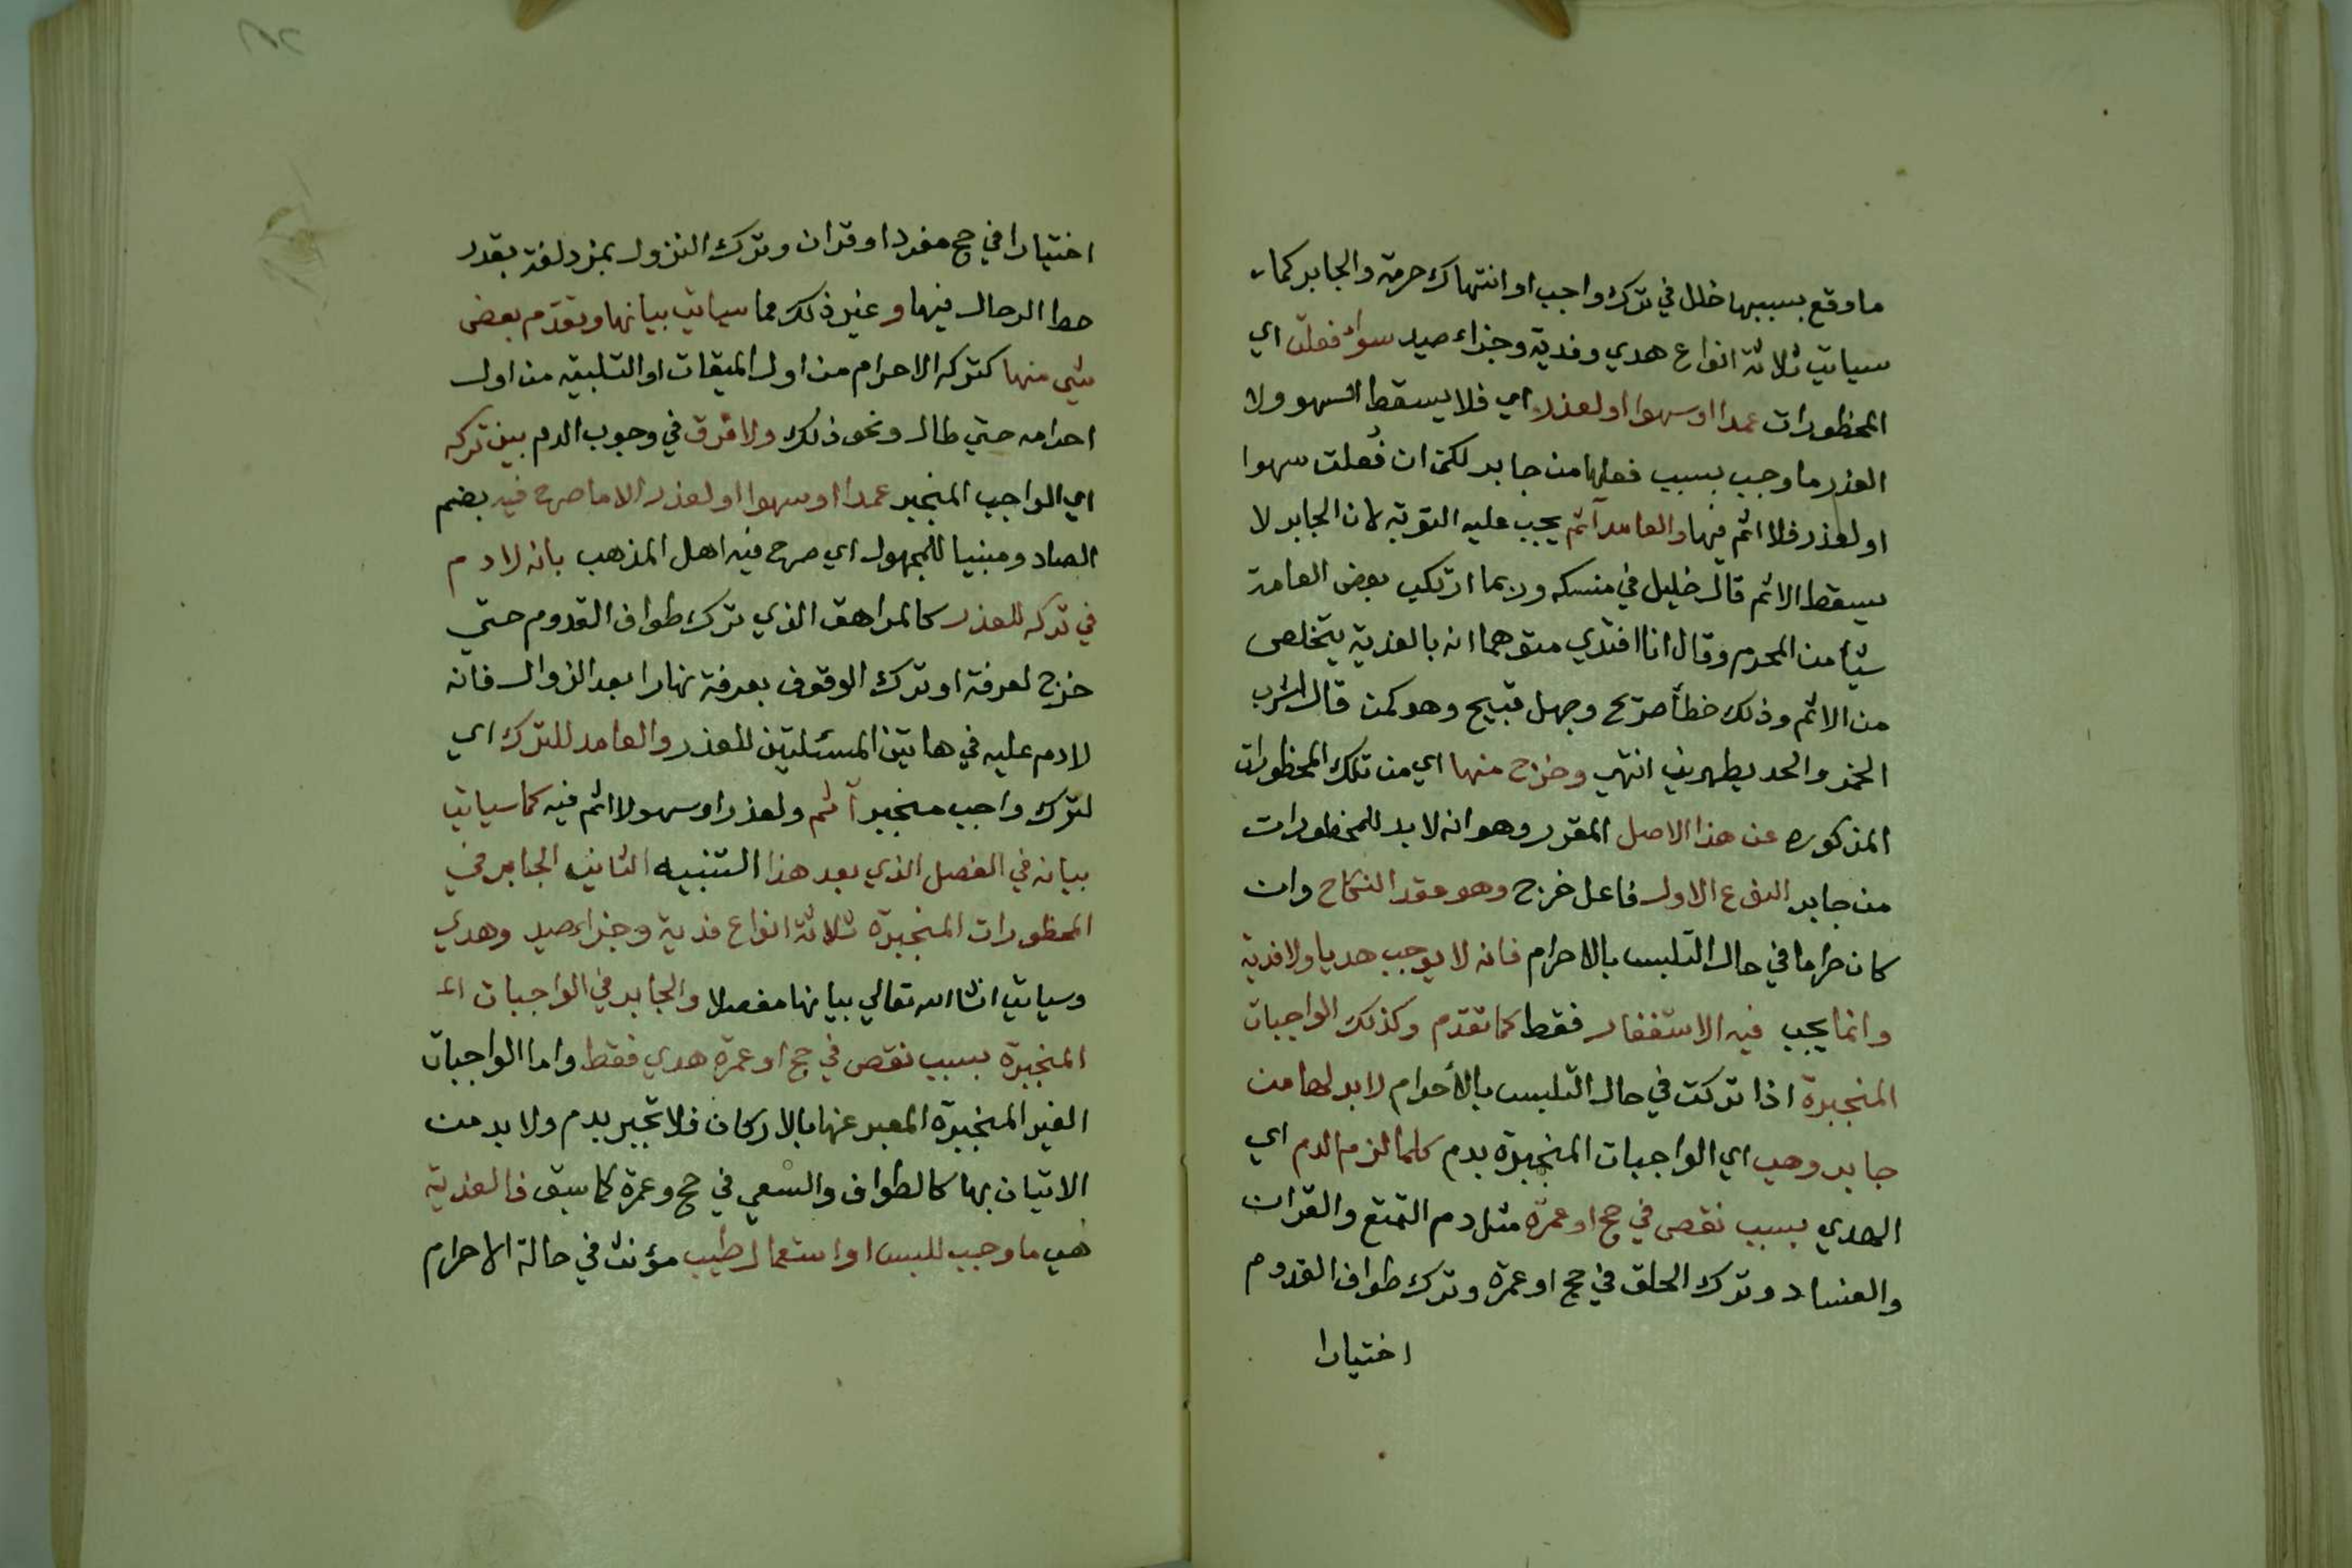 ما وقع بسببها خلل في ترك واجب او انتهاك حرمة والجابر كما
سياتي ثلاثة انواع هدي وفدية وجزاء صيد سواء فعلت اي
المحظورات عمدا او سهوا او لعذر اي فلا يسقط السهو ولا
العذر ما وجب بسبب فعلها من جابر لكن ان فُعلت سهوا
او لعذر فلا اثم فيها والعامد آثم يجب عليه التوبة لان الجابر لا
يسقط الاثم قال خليل في منسكه وربما ارتكب بعض العامة
شيأ من المحرم وقال انا افتدي متوهما انه بالفدية يتخلص
من الاثم وذلك خطأ صريح وجهل قبيح وهو كمن قال اشرب
الخمر والحد يطهرني انتهي وخرج منها اي من تلك المحظورات
المذكوره عن هذا الاصل المقرر وهو انه لا بد للمحظورات
من جابر النوع الاول فاعل خرج وهو عقد النكاح وان
كان حراما في حال التلبس بالاحرام فانه لا يوجب هديا ولا فدية
وانما يجب فيه الاستغفار فقط كما تقدم وكذلك الواجبات
المنجبرة اذا تركت في حال التلبس بالأحرام لا بد لها من
جابر وهي اي الواجبات المنجبرة بدم كلما لزم الدم اي
الهدي بسبب نقص في حج او عمرة مثل دم التمتع والقران
والفساد وترك الحلق في حج او عمرة وترك طواف القدوم
اختيارا
اختيارا في حج مفردا او قران وترك النزول بمزدلفة بقدر
حط الرحال فيها وغير ذلك مما سياتي بيانها وتقدم بعض
شي منها كتركه الاحرام من اول الميقات او التلبيه من اول
احرامه حتي طال ونحو ذلك ولا فرق في وجوب الدم بين تركه
اي الواجب المنجبر عمدا او سهوا او لعذر الا ما صرح فيه بضم
الصاد ومبنيا للمجهول اي صرح فيه اهل المذهب بانه لا دم
في تركه للعذر كالمراهق الذي ترك طواف القدوم حتي
خرج لعرفة او ترك الوقوف بعرفة نهارا بعد الزوال فانه
لا دم عليه في هاتين المسئلتين للعذر والعامد للترك اي
لترك واجب منجبر آثم ولعذر او سهو لا اثم فيه كما سياتي
بيانه في الفصل الذي بعد هذا التنبيه الثاني الجابر في
المحظورات المنجبرة ثلاثة انواع فدية وجزاء صيد وهدي
وسياتي انشا الله تعالي بيانها مفصلا والجابر في الواجبات
المنجبرة بسبب نقص في حج او عمرة هدي فقط واما الواجبات
الغير المنجبرة المعبر عنها بالاركان فلا تجبر بدم ولا بد من
الاتيان بها كالطواف والسعي في حج وعمرة كما سبق فالفدية
هي ما وجب للبس او استعمال طيب مؤنث في حالة الاحرام